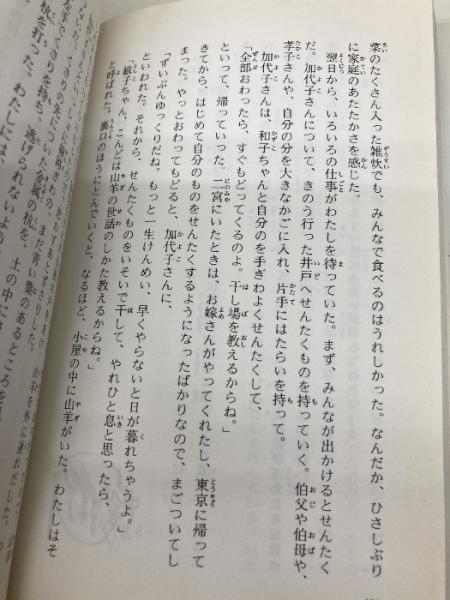 菜のたくさん入った雑炊でも、みんなで食べるのはうれしかった。なんだか、ひさしぶり
に家庭のあたたかさを感じた。
翌日から、いろいろの仕事がわたしを待っていた。まず、みんなが出かけるとせんたく
だ。加代子さんについて、きのう行った井戸へせんたくものを持っていく。伯父や伯母や、
孝子さんや、自分の分を大きなかごに入れ、片手にはたらいを持って。
加代子さんは、和子ちゃんと自分のを手ぎわよくせんたくして、
「全部おわったら、すぐもどってくるのよ。干し場を教えるからね。」
といって、帰っていった。二宮にいたときは、お嫁さんがやってくれたし、東京に帰って
きてから、はじめて自分のものをせんたくするようになったばかりなので、まごついてし
まった。やっとおわってもどると、加代子さんに、
「ずいぶんゆっくりだね。もっと一生けんめい、早くやらないと日が暮れちゃうよ。」
といわれた。それから、せんたくものをいそいで干して、やれひと息と思ったら、
「敏子ちゃん、こんどは山羊の世話のしかた教えるからね。」
と呼ばれた。裏口のほうにとんでいくと、なるほど、小屋の中に山羊がいた。わたしはそ